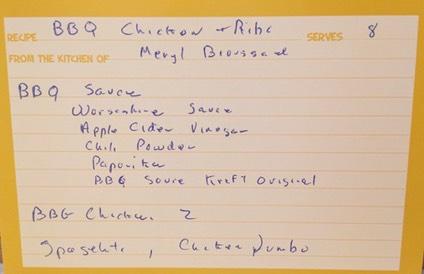 RECIPE BBQ Chicken + Ribs SERVES 8
FROM THE KITCHEN OF Meryl Broussard
BBQ Sauce
Worseshire Sauce
Apple Cider Vinegar
Chili Powder
Paporika
BBQ Souce Kraft Original
BBG Chicken 2
Spagehti, Chicken Jumbo